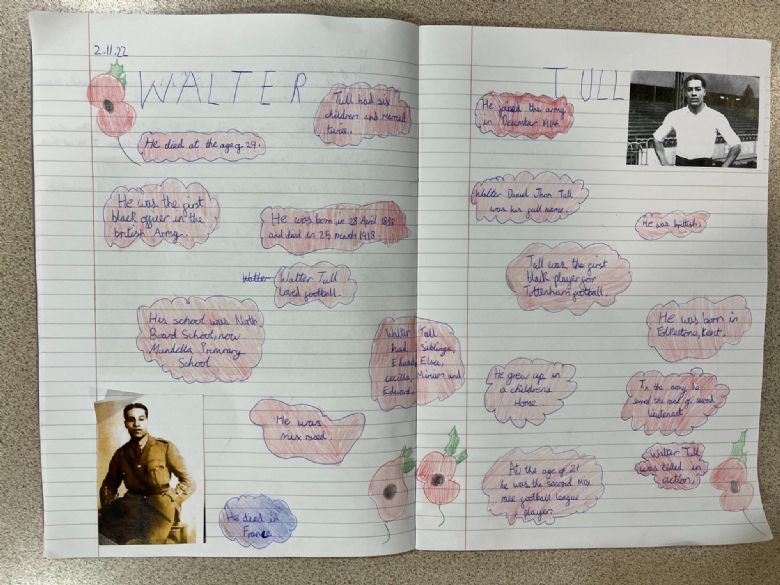 2.11.22
WALTER
Tull had six
children and
twice.
He died at the age of 29.
He was the first
black officer in the
british Army.
He was born in 28 April 1888
and died in 25 march 1918.
Walter
Walter Tull
Loved football.
His school was North
Board School, now
Mundella Primary
School
Walter Tull
had Siblings,
Elsie,
cecilia, Miriam and
Edward.
He was
mix raced.
He died in
France
TULL
He joined the army
in December 1914.
Walter Daniel Jhon Tull
was his full name.
He was british.
Tull was the first
black player for
Tottenham football.
He was born in
Folkestone, Kent.
He grew up in
a childrens
Home.
In the army he
the rank of second
lieutenant
At the age of 21
he was the second mix
race football league
player.
Walter Tull
was killed in
action.